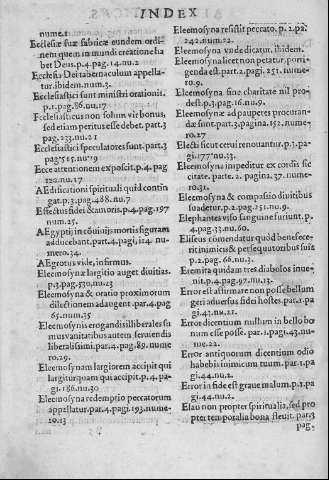 INDEX
nume.1
Ecclesiæ suæ fabricæ eundem ordi-
nem quem in mundi creatione ha
bet Deus.p.4.pag.14.nu.2
Ecclesia Dei tabernaculum appella-
tur.ibidem.num.3.
Ecclesiastici sunt ministri orationis.
p.1.pag.86.nu.17
Ecclesiasticus non solum vir bonus,
sed etiam peritus esse debet.part.3
pag.233.nu.21
Ecclesiastici speculatores sunt.part.3
pag.515.nu.19
Ecce attentionem exposcit.p.4.pag
120.nu.17
AEdificatori spirituali quid contin
gat.p.3.pag.488.nu.7
Effectus fidei & amoris.p.4.pag.197
num.25.
AEgyptij in cōuiuijs mortis figuram
adducebant.part.4.pagi,114.nu-
mero.34.
AEgrotus vide, infirmus.
Eleemosynæ largitio auget diuitias.
p.3.pag.530.nu.23
Eleemosyna & oratio proximorum
dilectionem adaugent.par.4.pag
65.num.35
Eleemosynis erogandis illiberales su
mus vanitatibus autem seruiendis
liberalissimi.par.4.pag.89.nume
ro.29.
Eleemosynam largiorem accipit qui
largitur quam qui accipit.p.4.pa-
gi.186.nu.30
Eleemosyna redemptio peccatorum
appellatur.par.4.pagi.193.nume-
ro.13
Eleemosyna resistit peccato.p.2.pa.
242.num.2.
Eleemosyna vnde dicatur, ibidem.
Eleemosyna licet non petatur, porri-
genda est.part.2.pagi.251.nume-
ro.9.
Eleemosyna sine charitate nil pro-
dest.p.3.pag.16.nu.9.
Eleemosynæ ad pauperes procuran-
dæ sunt.part.3.pagina.152.nume-
ro.27
Electi sicut cerui renouantur.p.1.pa-
gi.177.nu.33.
Eleemosyna impeditur ex cordis sic
citate. parte.2. pagina.37. nume-
ro.31.
Eleemosyna & compassio diuitibus
suadetur.p.2.pagi.251.nu.9.
Elephantes viso sanguine furiunt.p.
4.pag.33.nu.60.
Eliseus comendatur quòd benefece-
rit inimicis & persequutoribus suis
p.2.pag.66.nu.3.
Eremita quidam tres diabolos inue-
nit.p.4.pag.97.nu.13.
Error est affirmare non posse bellum
geri aduersus fidei hostes.par.1.pa
gi.43.nu.21.
Error dicentium nullum in bello bo
num esse posse. par.1.pagi.43.nu-
me.22.
Error antiquorum dicentium odio
habebis inimicum tuum.par.1.pa
gi.44.nu.2.
Error in fide est graue malum.p.1.pa
gi.43.nu.2.
Esau non propter spiritualia, sed pro
pter temporalia bona fleuit. par.3
pag.